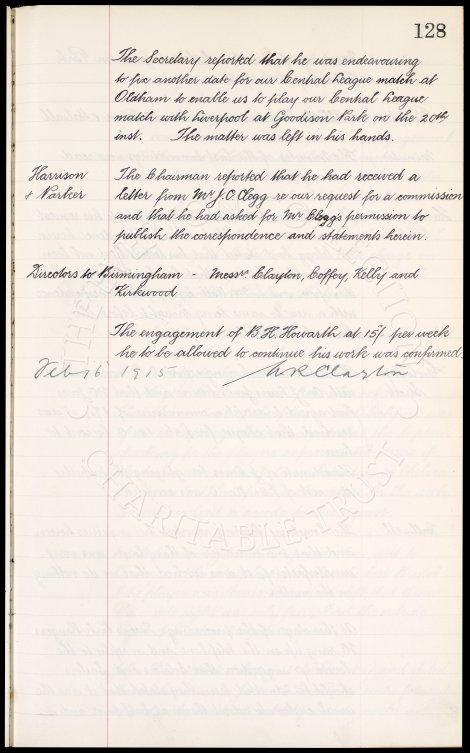 128
The Secretary reported that he was endeavouring
to fix another date for our Central League match at
Oldham to enable us to play our Central League
match with Liverpool at Goodison Park on the 20th
inst. The matter was left in his hands.
Harrison The Chairman reported that he had received a
& Parker letter from Mr J. C. Clegg re our request for a commission
and that he had asked for Mr Clegg's permission to
publish the correspondence and statements herein.
Directors to Birmingham - Messrs. Clayton, Coffey, Kelly and
Kirkwood
The engagement of B. H. Howarth at 15/- per week
he to be allowed to continue his work was confirmed
Feb 16 1915 W R Clayton
CHARITABLE TRUST